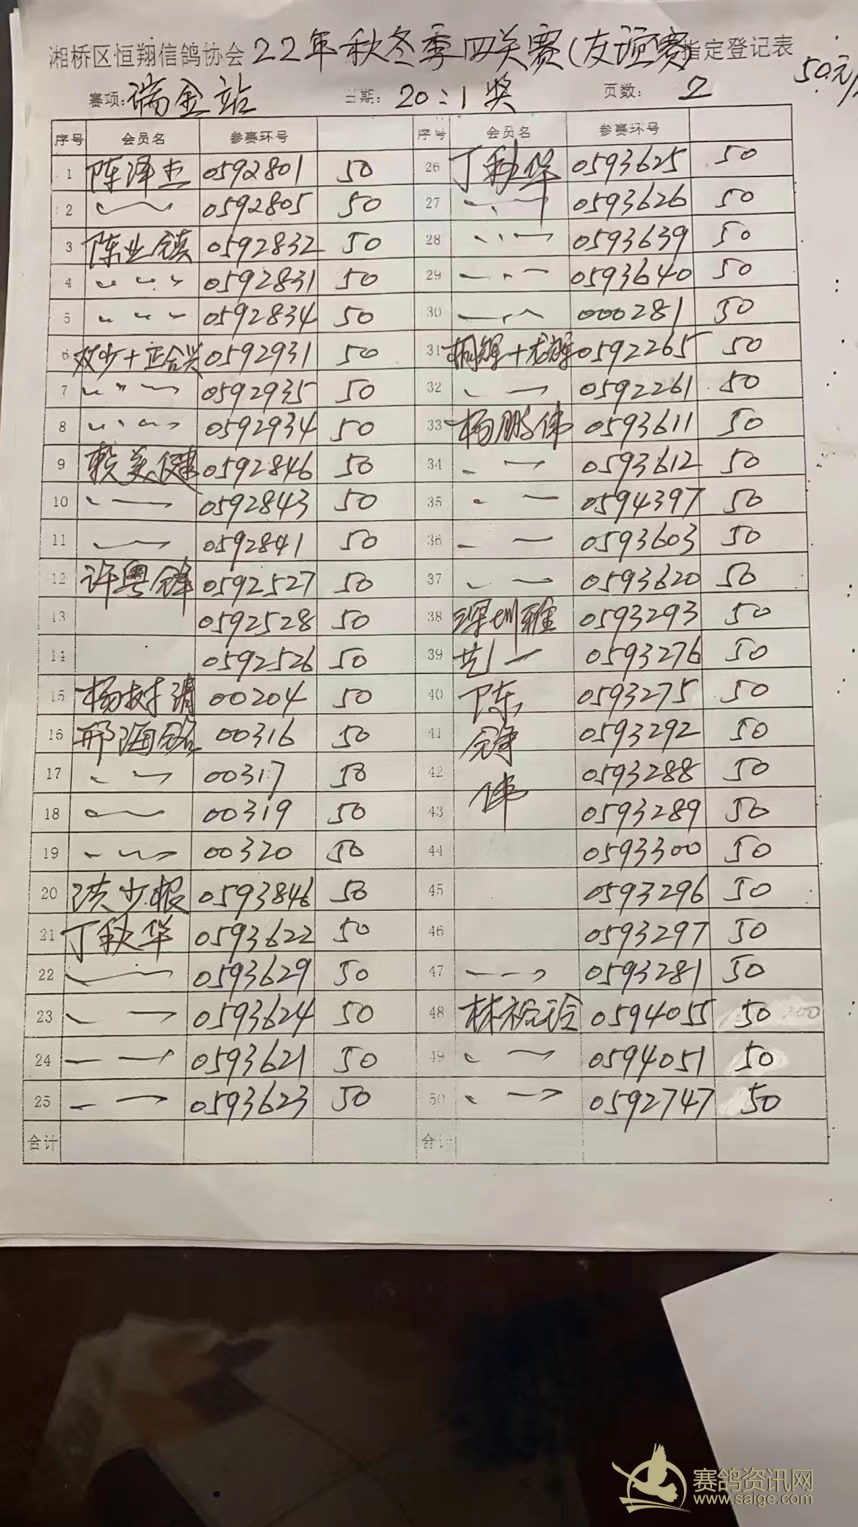 湘桥区恒翔信鸽协会22年秋冬季四关赛(友谊赛指定登记表
50元/
赛项:瑞金站 日期:20:1奖 页数:2
序号 会员名 参赛环号 序号 会员名 参赛环号
1 陈泽杰 0592801 50 26 丁秋华 0593625 50
2 0592805 50 27 0593626 50
3 陈业镇 0592832 50 28 0593639 50
4 0592831 50 29 0593640 50
5 0592834 50 30 000281 50
6 双少+正合兴 0592931 50 31 0592265 50
7 0592935 50 32 0592261 50
8 0592934 50 33 杨鹏伟 0593611 50
9 赖美健 0592846 50 34 0593612 50
10 0592843 50 35 0594397 50
11 0592841 50 36 0593603 50
12 许粤锋 0592527 50 37 0593620 50
13 0592528 50 38 深圳雅 0593293 50
14 0592526 50 39 艺一 0593276 50
15 杨树清 00204 50 40 陈 0593275 50
16 邢海铭 00316 50 41 0593292 50
17 00317 50 42 伟 0593288 50
18 00319 50 43 0593289 50
19 00320 50 44 0593300 50
20 洪少根 0593846 50 45 0593296 50
21 丁秋华 0593622 50 46 0593297 50
22 0593629 50 47 0593281 50
23 0593624 50 48 0594055 50
24 0593621 50 49 0594051 50
25 0593623 50 50 0592747 50
合计 合计
赛鸽资讯网
www.saige.com